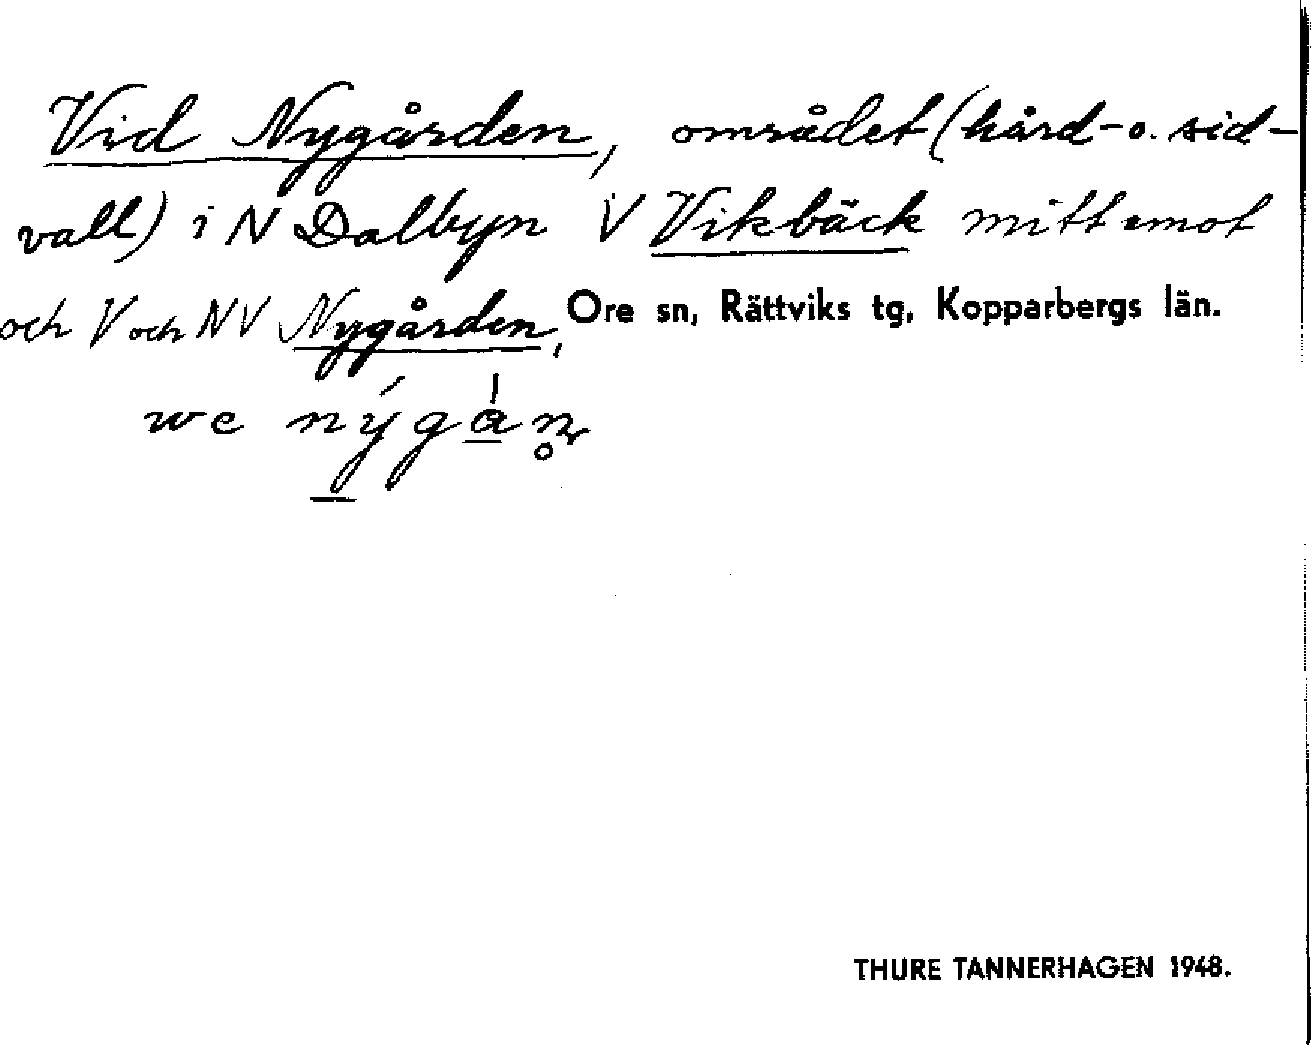 Vid Nygården, området (hård- o. sid-
vall) i N Dalbyn V Vikbäck mitt emot
och V och NV Nygården, Ore sn, Rättviks tg, Kopparbergs län.
we nýgá̱n̥
THURE TANNERHAGEN 1948.